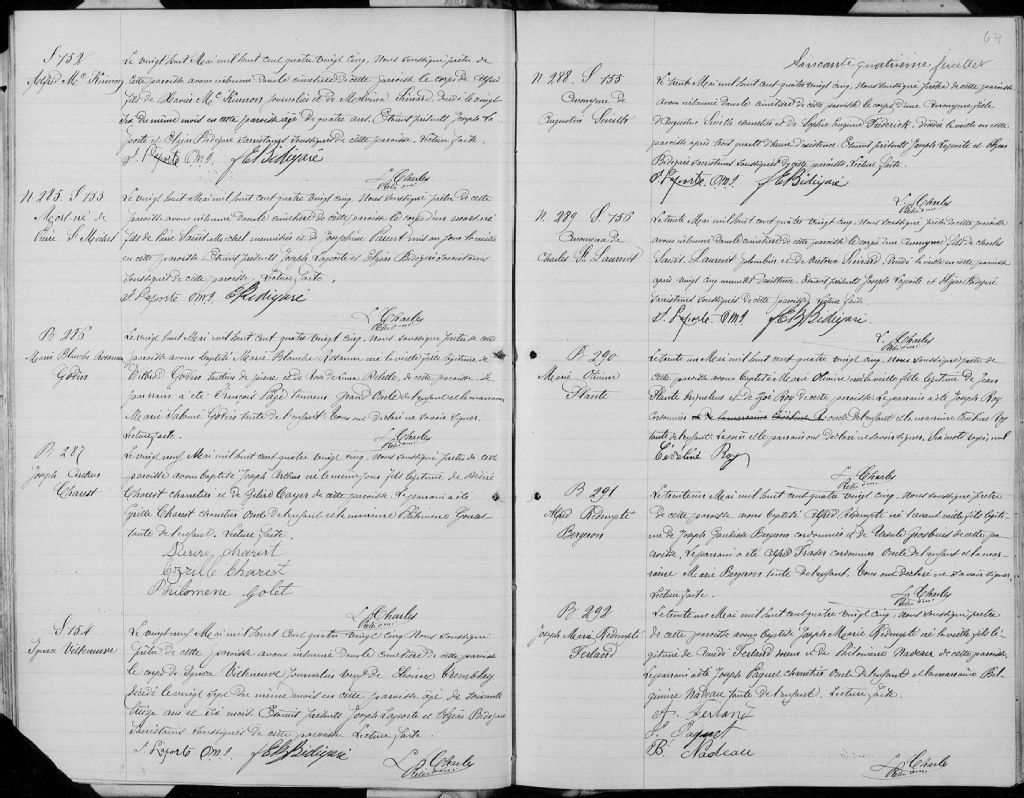 S 152
Alfred Mc Kinnon
Le vingt huit Mai mil huit cent quatre vingt cinq. Nous soussigné prêtre de
cette paroisse avons inhumé dans le cimetière de cette paroisse le corps de Alfred
fils de Xavier Mc Kinnon journalier et de Malvina Simard. Décédé le vingt
six du même mois en cette paroisse agé de quatre ans. Etaient présents Joseph La
porte et Elzéar Bédigaré Sacristains soussignés de cette paroisse. Lecture faite.
J. Laporte OMI. Bédigaré
L. Charles
Ptre omi
N 285. S 153
Mort né de
Pierre St Michel
Le vingt huit Mai mil huit cent quatre vingt cinq. Nous soussigné prêtre de cette
paroisse avons inhumé dans le cimetière de cette paroisse le corps d'un mort né
fils de Pierre Saint Michel menuisier et de Joséphine Parent mis au jour la veille
en cette paroisse. Etaient présents Joseph Laporte et Elzéar Bédigaré Sacristains
soussignés de cette paroisse. Lecture faite.
J. Laporte OMI. Bédigaré
L. Charles
Ptre omi
B 286
Marie Blanche Rosanna
Godin
Le vingt huit Mai mil huit cent quatre vingt cinq. Nous soussigné prêtre de cette
paroisse avons baptisé Marie Blanche Rosanna née la veille fille légitime de
Godin tailleur de pierre et de Rose de Lima de cette paroisse. Le
parrain a été François Pagé tanneur Grand Oncle de l'enfant et la marraine
Marie Salomé Godin tante de l'enfant. Vous ont déclaré ne savoir signer.
Lecture faite.
L. Charles
Ptre omi
B 287
Joseph Arthur
Charest
Le vingt neuf Mai mil huit cent quatre vingt cinq. Nous soussigné prêtre de cette
paroisse avons baptisé Joseph Arthur né le même jour fils légitime de Désiré
Charest charretier et de Cayer de cette paroisse. Le parrain a été
Cyrille Charest charretier Oncle de l'enfant et la marraine Philomène
tante de l'enfant. Lecture faite.
Desire Charest
Cyrille Charest
Philomene Golet
L. Charles
Ptre omi
S 154
Ignace Villeneuve
Le vingt neuf Mai mil huit cent quatre vingt cinq. Nous soussigné
prêtre de cette paroisse avons inhumé dans le cimetière de cette paroisse
le corps de Ignace Villeneuve journalier veuf de Tremblay
décédé le vingt sept du même mois en cette paroisse agé de soixante
treize ans et six mois. Etaient présents Joseph Laporte et Elzéar Bédigaré
Sacristains soussignés de cette paroisse. Lecture faite.
J. Laporte OMI. Bédigaré
L. Charles
Ptre omi
64
Soixante quatrième feuillet
N 288. S 155
Anonyme de
Augustin Smith
Le trente Mai mil huit cent quatre vingt cinq. Nous soussigné prêtre de cette paroisse
avons inhumé dans le cimetière de cette paroisse le corps d'une Anonyme fille
d'Augustin Smith charretier et de Sophie Frederick. Décédée la veille en cette
paroisse après trois quarts d'heure d'existence. Etaient présents Joseph Laporte et Elzéar
Bédigaré Sacristains soussignés de cette paroisse. Lecture faite.
J. Laporte OMI. Bédigaré
L. Charles
Ptre omi
N 289 S 156
Anonyme de
Charles St Laurent
Le trente Mai mil huit cent quatre vingt cinq. Nous soussigné prêtre de cette paroisse
avons inhumé dans le cimetière de cette paroisse le corps d'un Anonyme fils de Charles
Saint Laurent plombier et de Simard. Décédé la veille en cette paroisse
après vingt cinq minutes d'existence. Etaient présents Joseph Laporte et Elzéar Bédigaré
Sacristains soussignés de cette paroisse. Lecture faite.
J. Laporte OMI. Bédigaré
L. Charles
Ptre omi
B 290
Marie Olivine
Plante
Le trente un Mai mil huit cent quatre vingt cinq. Nous soussigné prêtre de
cette paroisse avons baptisé Marie Olivine née la veille fille légitime de Jean
Plante et de Zoé Roy de cette paroisse. Le parrain a été Joseph Roy
cordonnier oncle de l'enfant et la marraine Roy
tante de l'enfant. Le père et le parrain ont déclaré ne savoir signer. Six mots rayés nuls
Roy
L. Charles
Ptre omi
B 291
Alfred Rédempté
Bergeron
Le trente un Mai mil huit cent quatre vingt cinq. Nous soussigné prêtre
de cette paroisse avons baptisé Alfred Rédempté né l'avant veille fils légiti-
me de Joseph Bergeron cordonnier et de Ursule de cette pa-
roisse. Le parrain a été Alfred Fraser cordonnier Oncle de l'enfant et la mar-
raine Marie Bergeron tante de l'enfant. Vous ont déclaré ne savoir signer.
Lecture faite.
L. Charles
Ptre omi
B 292
Joseph Marie Rédempté
Ferland
Le trente un Mai mil huit cent quatre vingt cinq. Nous soussigné prêtre
de cette paroisse avons baptisé Joseph Marie Rédempté né la veille fils lé-
gitime de Ferland et de Philomène Nadeau de cette paroisse.
Le parrain a été Joseph Paquet charretier Oncle de l'enfant et la marraine
Nadeau tante de l'enfant. Lecture faite.
A. Ferland
J. Paquet
B. Nadeau
L. Charles
Ptre omi